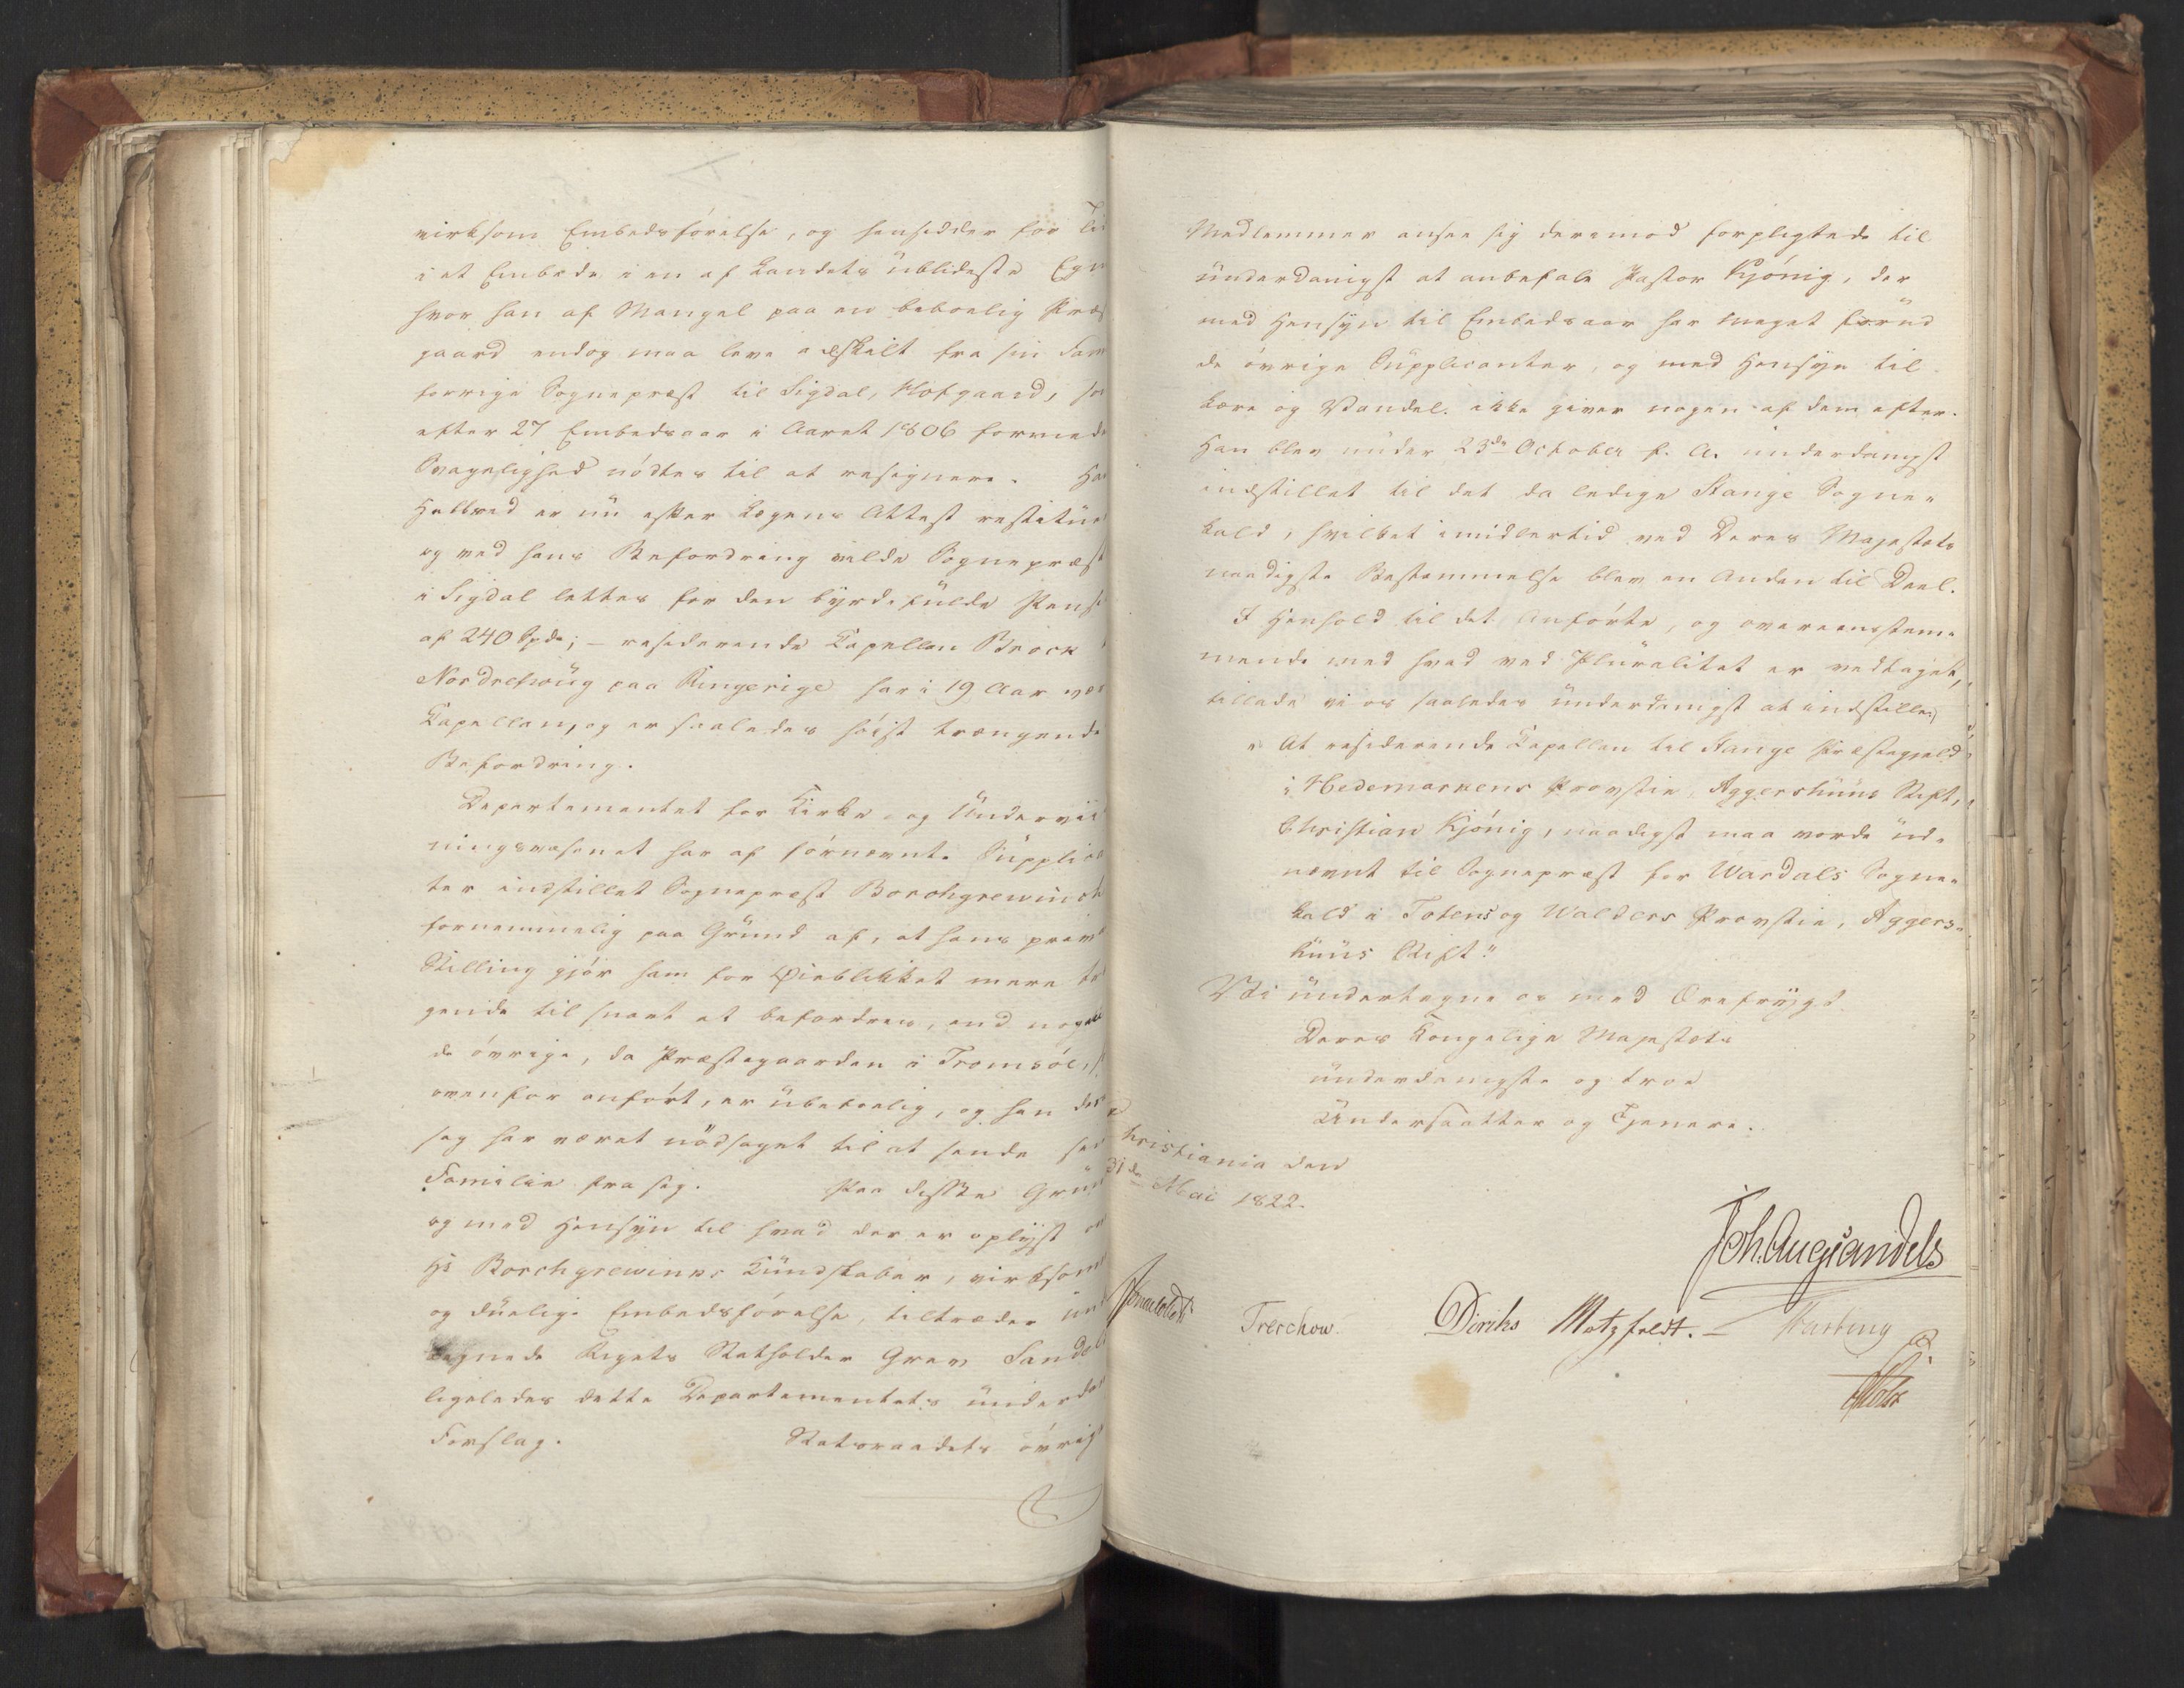 virksom Embedsförelse, og hensidder for Tid
i et Embede i en af Landets ublideste Egn
hvor han af Mangel paa en beboelig Præst
gaard endog maa leve adskilt fra sin Fam
forrige Sognepræst til Sigdal, Hofgaard, som
efter 27 Embedsaar i Aaret 1806 formed
Svagelighed nödtes til at resignere. Hans
Helbred er nu efter Lægens Attest restitue
og ved hans Befordring vilde Sognepræst
i Sigdal lettes for den byrdefulde Pensi
af 240 Spd; – residerende Capellan Brock
Nordrehoug paa Ringerige har i 19 Aar væ
Capellan, og er saaledes höist trængende
Befordring.
Departementet for Kirke- og Underviis
ningsvæsenet har af förnævnte Supplic
ter indstillet Sognepræst Borchgrewinck
fornemmelig paa Grund af, at hans priva
Stilling gjör ham for Øieblikket mere tr
gende til snart at befordres, end nogen
de övrige, da Præstegaarden i Tromsöe, s
ovenfor anfört, er ubeboelig, og han des
sag har været nödsaget til at sende sin
Familie fra sig. Paa disse Grun
og med Hensyn til hvad der er oplyst om
Hr Borchgrewinks Kundskaber, virksom
og duelige Embedsförelse, tiltræder und
tegnede Rigets Statholder Grev Sandels
ligeledes dette Departementets underda
Forslag. Statsraadets övrig
Medlemmer ansee sig derimod forpligtede til
underdanigst at anbefale Pastor Kjönig, der
med Hensyn til Embedsaar har meget forud
de övrige Supplicanter, og med Hensyn til
Lære og Vandel ikke giver nogen af dem efter.
Han blev under 23de October f. A. underdanigst
indstillet til det da ledige Stange Sogne-
kald, hvilket imidlertid ved Deres Majestæts
naadigste Bestemmelse blev en Anden til Deel.
I Henhold til det Anförte, og overeensstem-
mende med hvad ved Pluralitet er vedtaget,
tillade vi os saaledes underdanigst at indstille:
"At residerende Capellan til Stange Præstegjeld
i Hedemarkens Provstie, Aggershuus Stift,
Christian Kjönig, naadigst maa vorde ud-
nævnt til Sognepræst for Wardals Sogne-
kald i Totens og Walders Provstie, Aggers-
huus Stift."
Vi undertegne os med Ærefrygt
Deres Kongelige Majestæts
underdanigste og troe
Undersaatter og Tjenere.
Christiania den
31de Mai 1822.
Joh. Aug. Sandels
Sommerfeldt Treschow Diriks Motzfeldt. Fasting
Holst